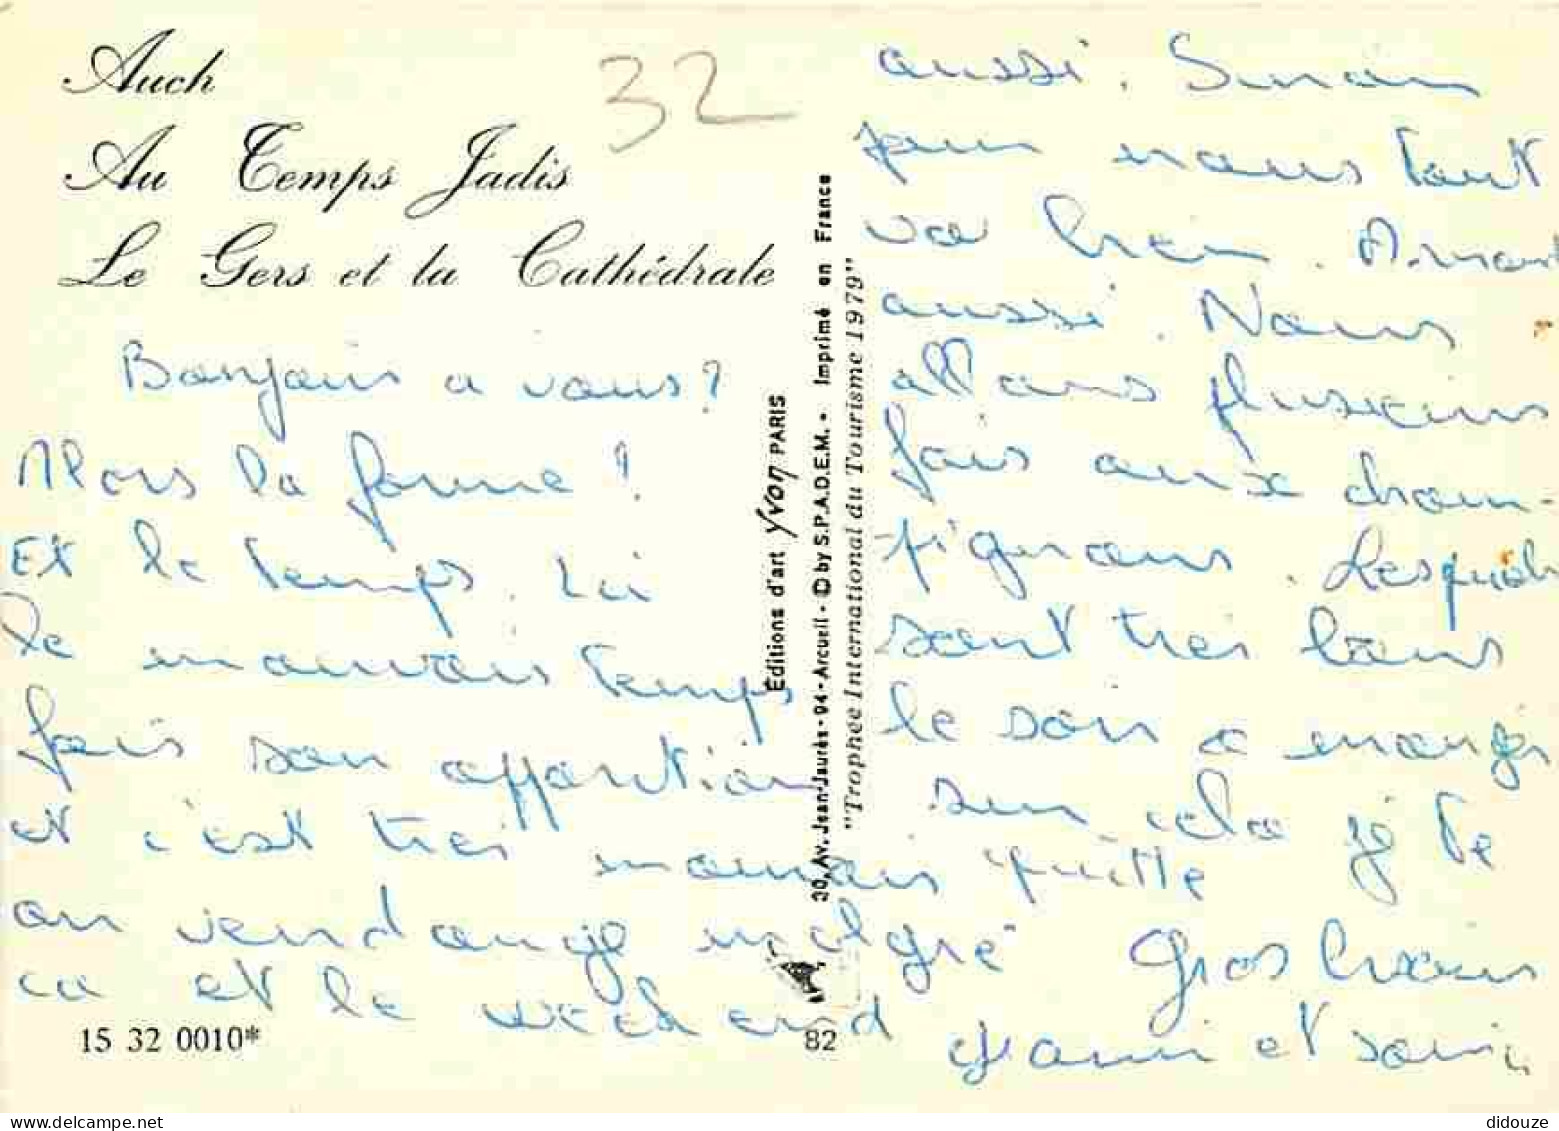 Auch
Au Temps Jadis
Le Gers et la Cathédrale
32
Bonjour a vous?
Alors la forme!
Et le temps. Ici
le mauvais temps
fais son apparition
et c'est très mauvais
on vendange malgré
ca et le weekend
15 32 0010*
Éditions d'art Yvon PARIS
30, Av. Jean-Jaurès - 94 - Arcueil - © by S.P.A.D.E.M. - Imprimé en France
"Trophée International du Tourisme 1979"
82
aussi. Sinon
pour nous tout
va bien.
aussi. Nous
allons plusieurs
fois aux cham-
pignons.
sont très bons
le soir a manger
sur cela je te
quitte
Gros bisous
et
didouze